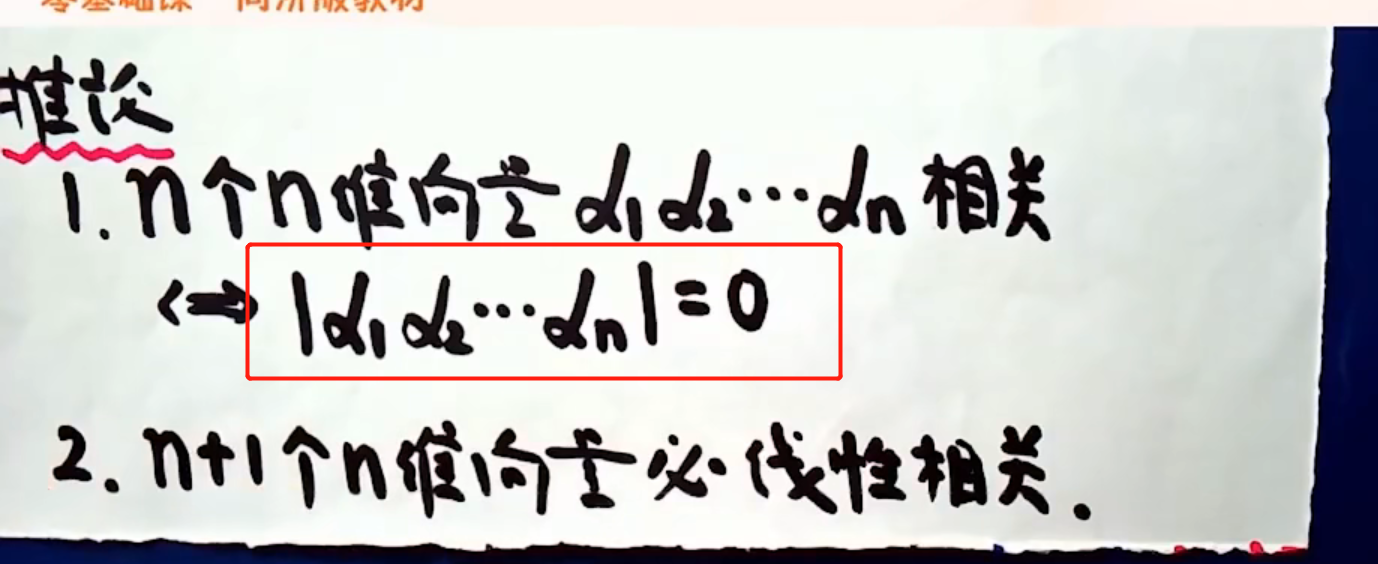 推论
1. n个n维向量 α₁ α₂ ⋯ αₙ 相关
⇔ |α₁ α₂ ⋯ αₙ| = 0
2. n+1个n维向量必线性相关.